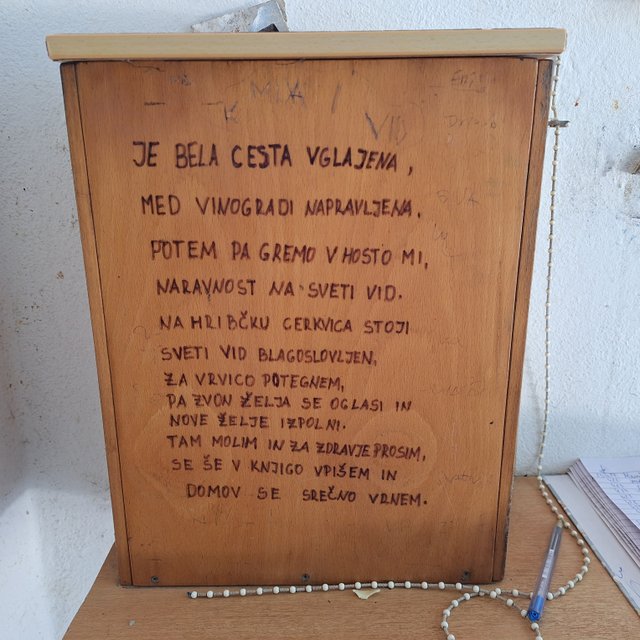 JE BELA CESTA VGLAJENA,
MED VINOGRADI NAPRAVLJENA,
POTEM PA GREMO V HOSTO MI,
NARAVNOST NA SVETI VID.
NA HRIBČKU CERKVICA STOJI
SVETI VID BLAGOSLOVLJEN,
ZA VRVICO POTEGNEM,
PA ZVON ŽELJA SE OGLASI IN
NOVE ŽELJE IZPOLNI.
TAM MOLIM IN ZA ZDRAVJE PROSIM,
SE ŠE V KNJIGO VPIŠEM IN
DOMOV SE SREČNO VRNEM.